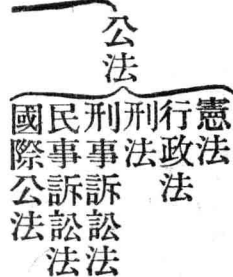 公法
憲法
行政法
刑法
刑事訴訟法
民事訴訟法
國際公法